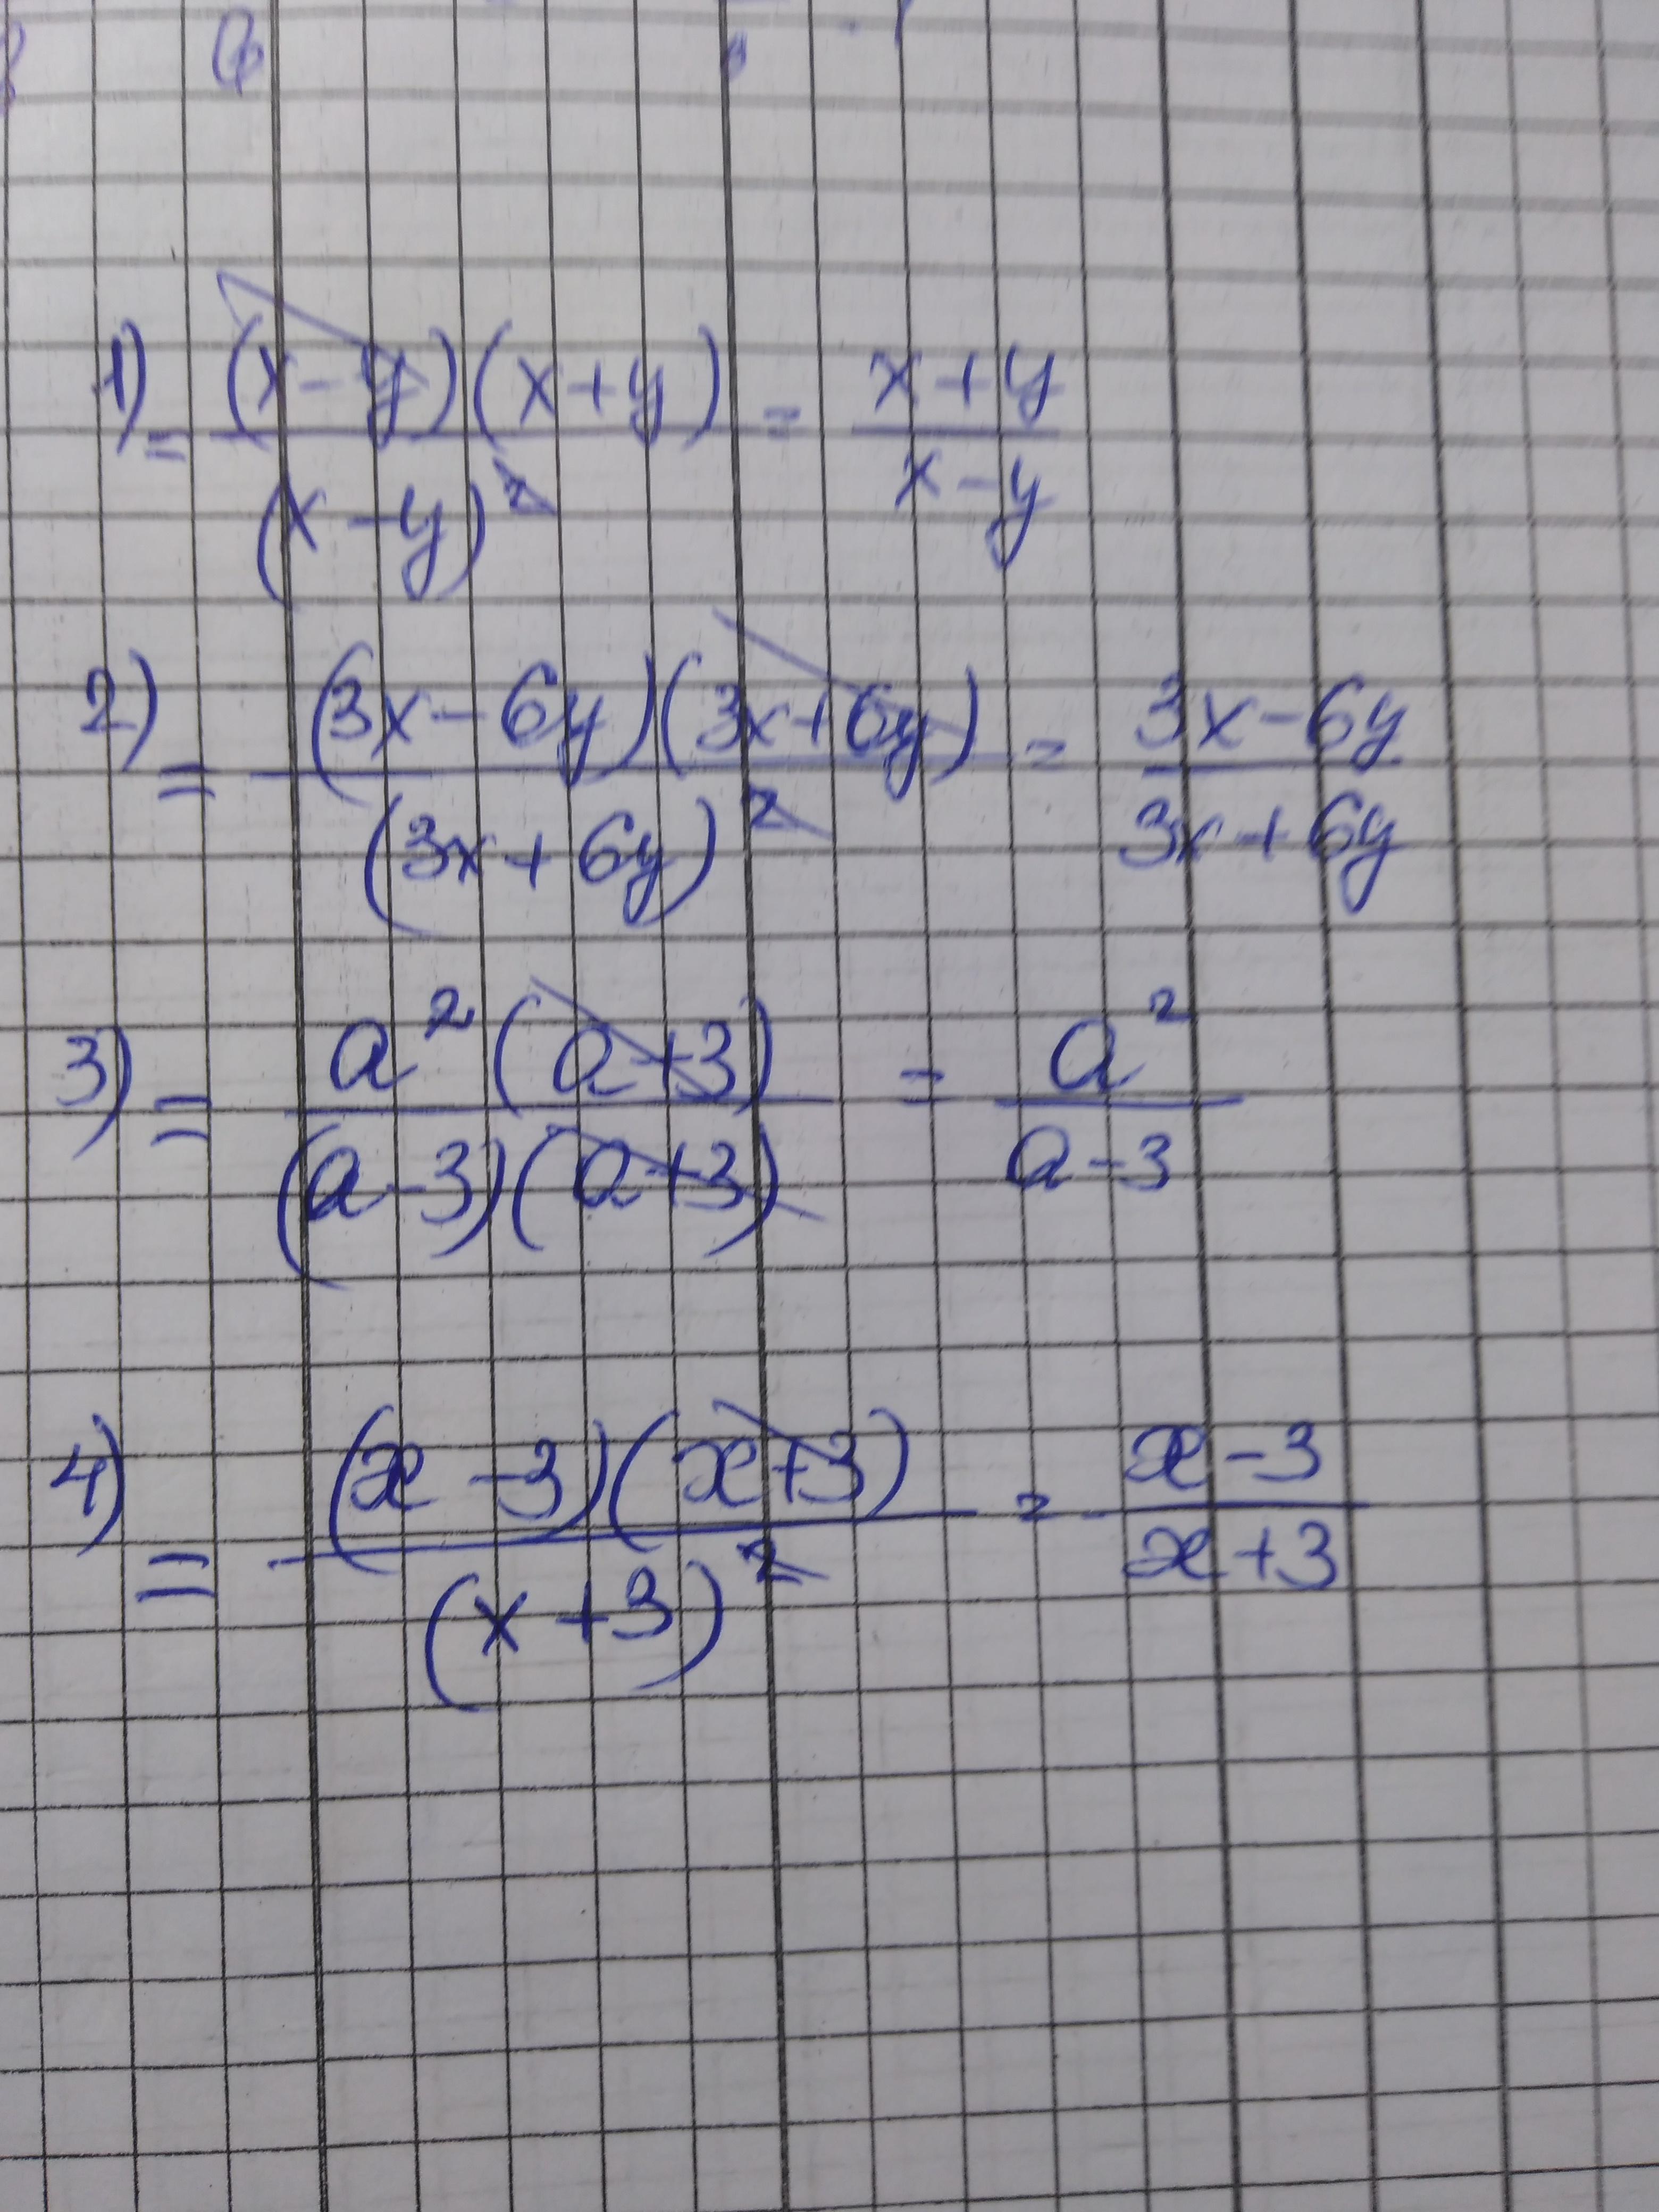 1) = (x-y)(x+y) / (x-y)² = x+y / x-y
2) = (3x-6y)(3x+6y) / (3x+6y)² = 3x-6y / 3x+6y
3) = a²(a+3) / (a-3)(a+3) = a² / a-3
4) = (x-3)(x+3) / (x+3)² = x-3 / x+3